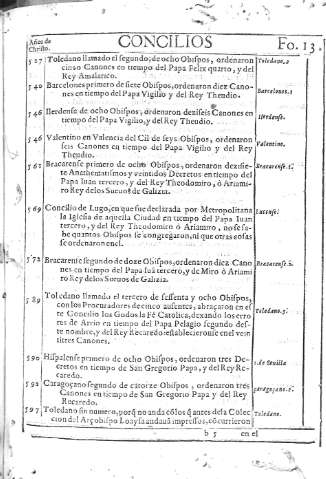 Años de
Christo.
CONCILIOS
Fo. 13.
527 Toledano llamado el segundo; de ocho Obispos, ordenaron
cinco Canones en tiempo del Papa Felix quarto, y del
Rey Amalarico.
Toledano. 2
540 Barcelones primero de siete Obispos, ordenaron diez Cano-
nes en tiempo del Papa Vigilio y del Rey Thendio.
Barcelones. 1
546 Ilerdense de ocho Obispos, ordenaron deziseis Canones en
tiempo del Papa Vigilio, y del Rey Thendio.
Ilerdense.
546 Valentino en Valencia del Cil de seys Obispos, ordenaron
seis Canones en tiempo del Papa Vigilio y del Rey
Theudio.
Valentino.
Bracarense primero de ocho Obispos, ordenaron dezisie-
te Anathematismos y veintidos Decretos en tiempo del
Papa Iuan tercero, y del Rey Theodomiro, ò Ariami-
ro Rey de los Sueuos de Galizia.
Bracarense. 1.
569 Concilio de Lugo, en que fue declarada por Metropolitana
la Iglesia de aquella Ciudad en tiempo del Papa Iuan
tercero, y del Rey Theodomiro ò Ariamiro, no se sa-
be quantos Obispos se congregaron, ni que otras cosas
se ordenaron en el.
Lucense.
572 Bracarense segundo de doze Obispos, ordenaron diez Cano
nes en tiempo del Papa Iuã tercero, y de Miro ò Ariami
ro Rey de los Sueuos de Galizia.
Bracarense. 2.
589 Toledano llamado el tercero de sesenta y ocho Obispos,
con los Procuradores de cinco ausentes, abraçaron en es
te Concilio los Godos la Fè Catolica, dexando los erro
res de Arrio en tiempo del Papa Pelagio segundo des-
te nombre, y del Rey Recaredo: establecieronse en el vein
titres Canones.
Toledano. 3.
590 Hispalense primero de ocho Obispos, ordenaron tres De-
cretos en tiempo de San Gregorio Papa, y del Rey Re-
caredo.
1. de Sevilla
592 Caragoçano segundo de catorze Obispos, ordenaron tres
Canones en tiempo de San Gregorio Papa y del Rey
Recaredo.
Caragoçano. 2.
597 Toledano sin numero, porq̃ no anda cõ los q̃ antes desta Colec
cion del Arçobispo Loaysa andauã impressos, cõcurrieron
Toledano.
b 5
en el